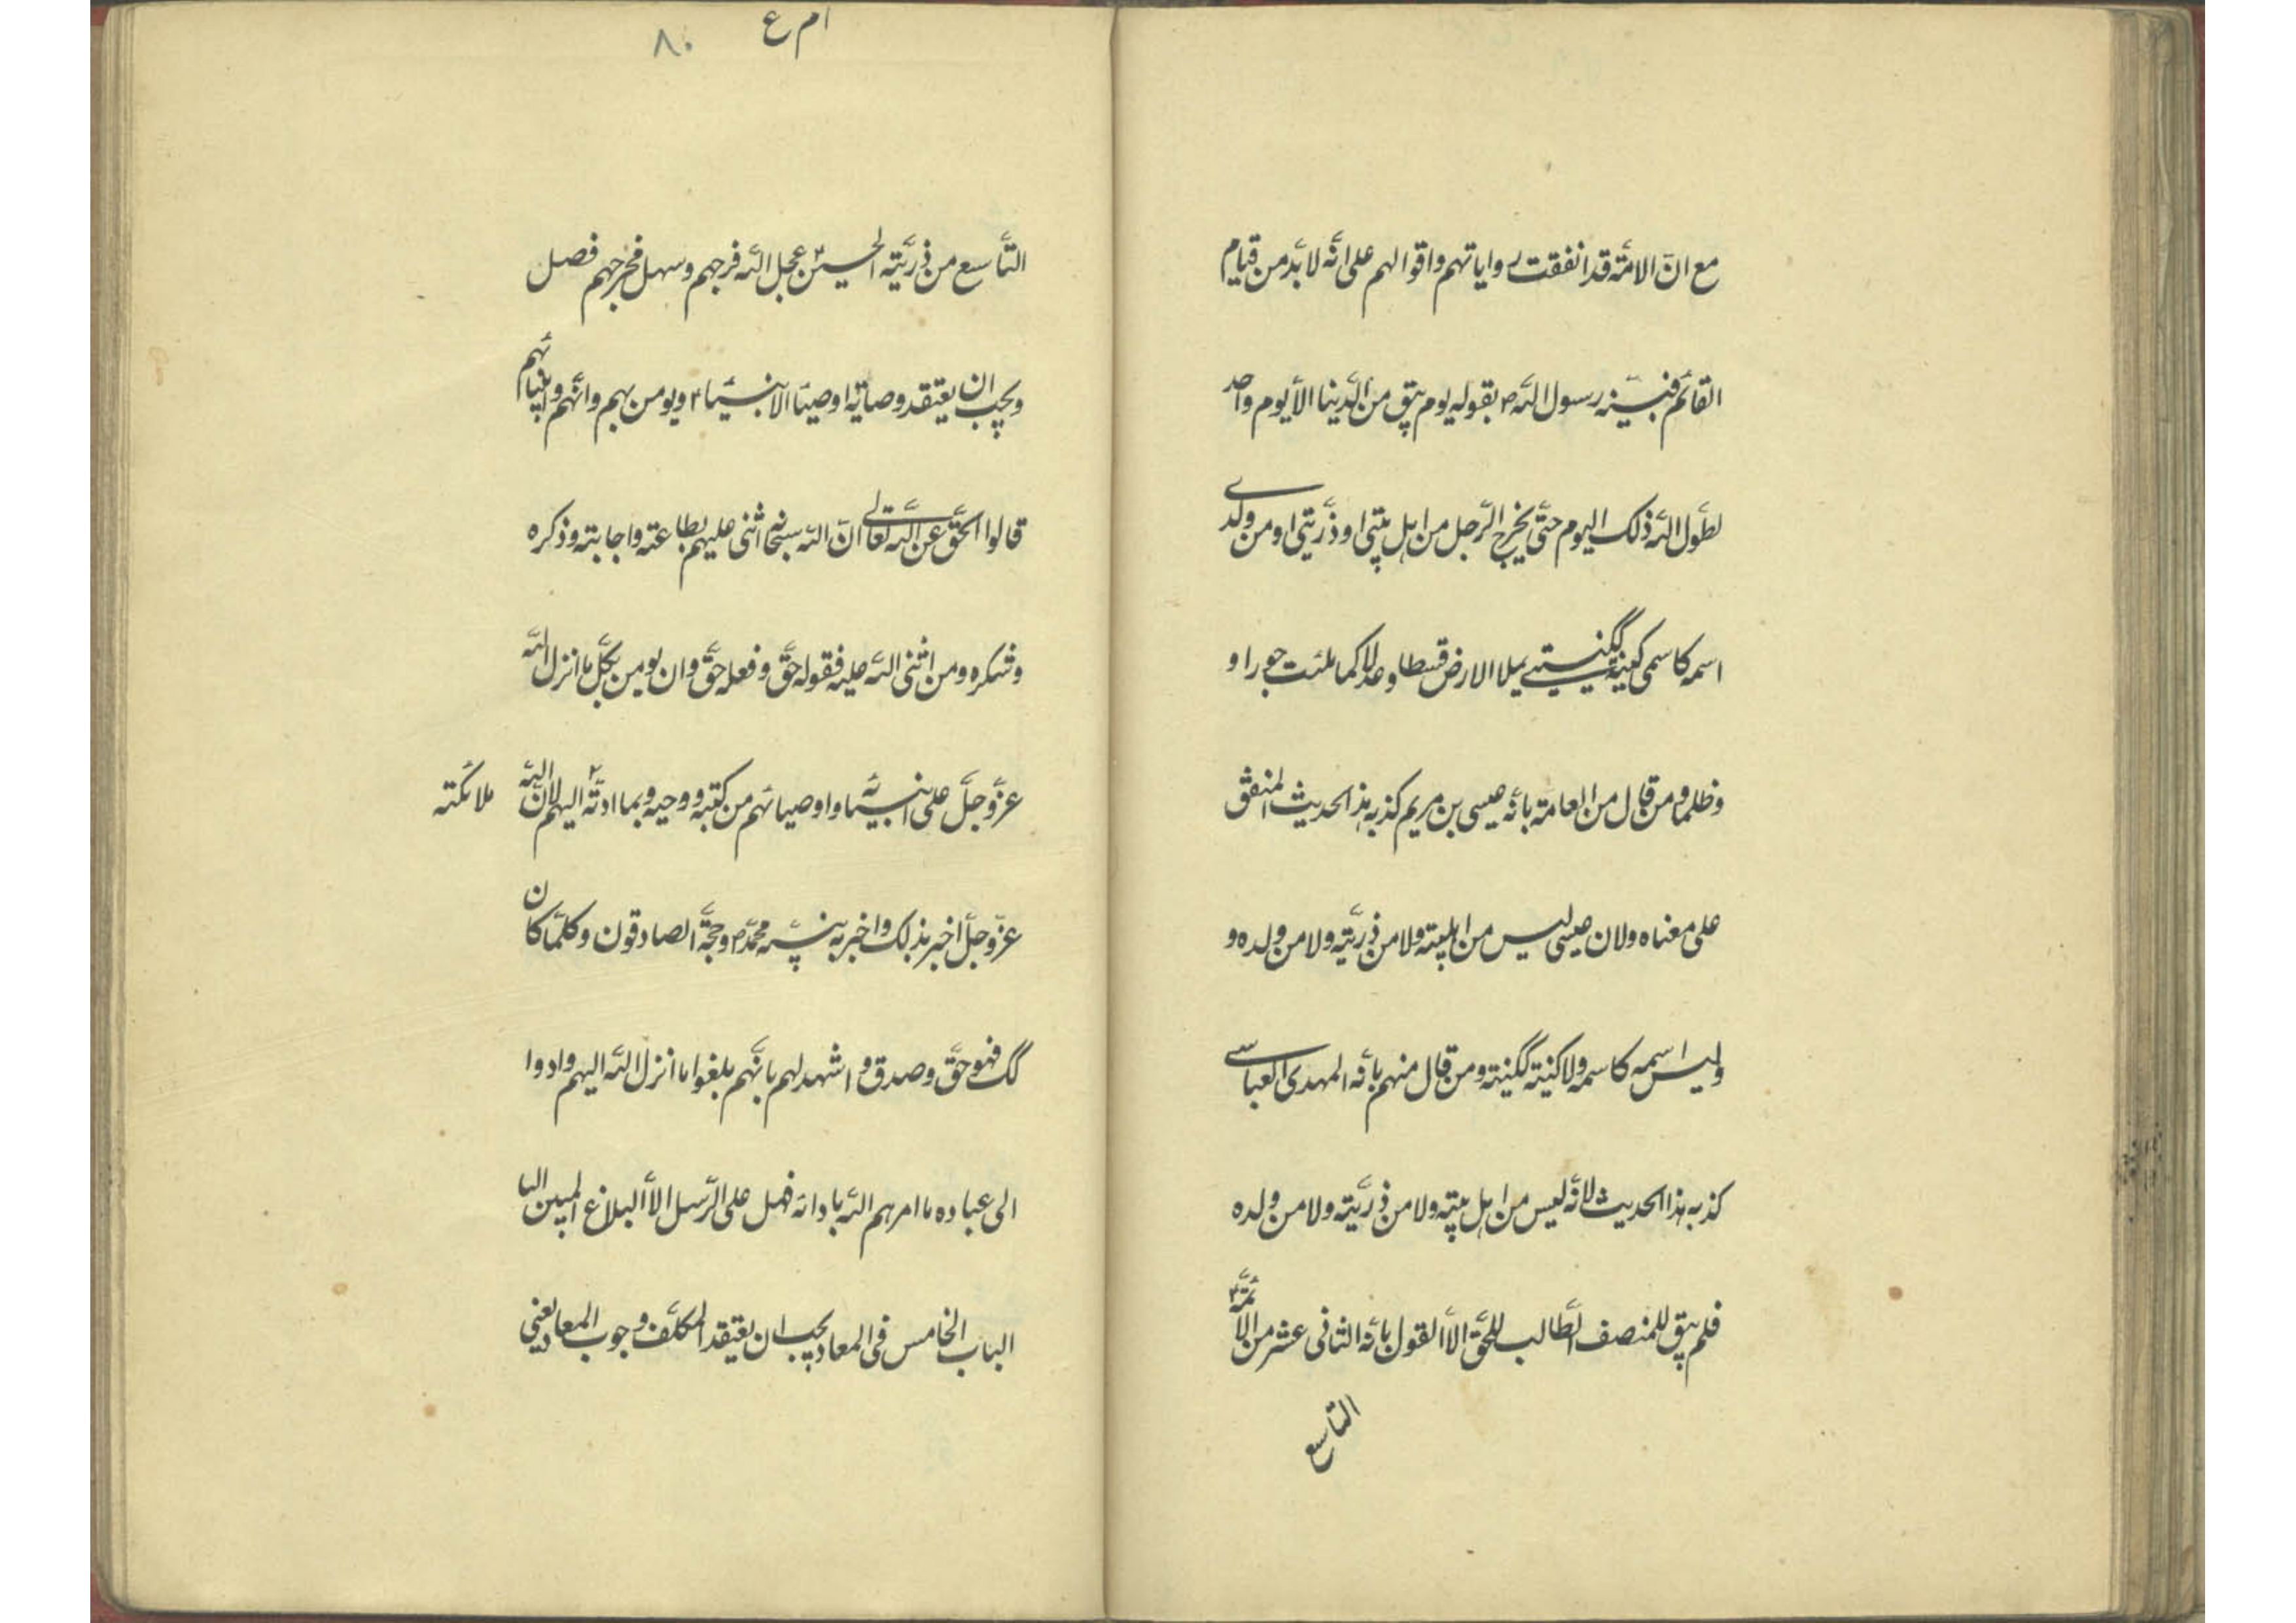 مع انّ الامّة قد اتفقت رواياتهم واقوالهم على انّه لا بدّ من قيام
القائم فبيّنه رسول اللّه ص بقوله يوم يبق من الدّنيا الّا يوم واحد
لطوّل اللّه ذلك اليوم حتّى يخرج الرّجل من اهل بيتى او ذرّيتى او من ولدے
اسمه كاسمى كنيته ككنيتے يملا الارض قسطا وعدلا كما ملئت جورا و
وظلما ومن قال من العامة بانّه عيسى بن مريم كذبه هذا الحديث المتفق
على معناه ولان عيسى ليس من اهلبيته ولا من ذرّيته ولا من ولده و
وليس اسمه كاسمه ولا كنيته ككنيته ومن قال منهم بانّه المهدى العباسے
كذبه هذا الحديث لانّه ليس من اهل بيته ولا من ذرّيته ولا من ولده
فلم يبق للمنصف الطّالب للحقّ الّا القول بانّه الثانى عشر من الائمّة ع
التاسع
ام ع ٨٠
التّاسع من ذرّيته الحسين ع عجل اللّه فرجهم وسهل مخرجهم فصل
ويجب ان يعتقد وصاية اوصياء الانبياء ع ويومن بهم وانّهم وانبيائهم
قالوا الحقّ عن اللّه تعالے انّ اللّه سبحانه اثنى عليهم بطاعته واجابته وذكره
وشكره ومن اثنى اللّه عليه فقوله حقّ وفعله حقّ وان يومن بكلّ ما انزل اللّه
عزّ وجلّ على انبيائه واوصيائهم من كتبه ووحيه وبما ادته اليهم ملائكته لانّ اللّه
عزّ وجلّ اخبر بذلك واخبر به نبيّه محمّد ص وحججه الصادقون وكلّما كان
كك فهو حقّ وصدق واشهد لهم بانّهم بلغوا ما انزل اللّه اليهم وادوا
الى عباده ما امرهم اللّه بادائه فهل على الرّسل الّا البلاغ المبين البا
الباب الخامس فى المعاد يجب ان يعتقد المكلّف وجوب المعاد يعنى